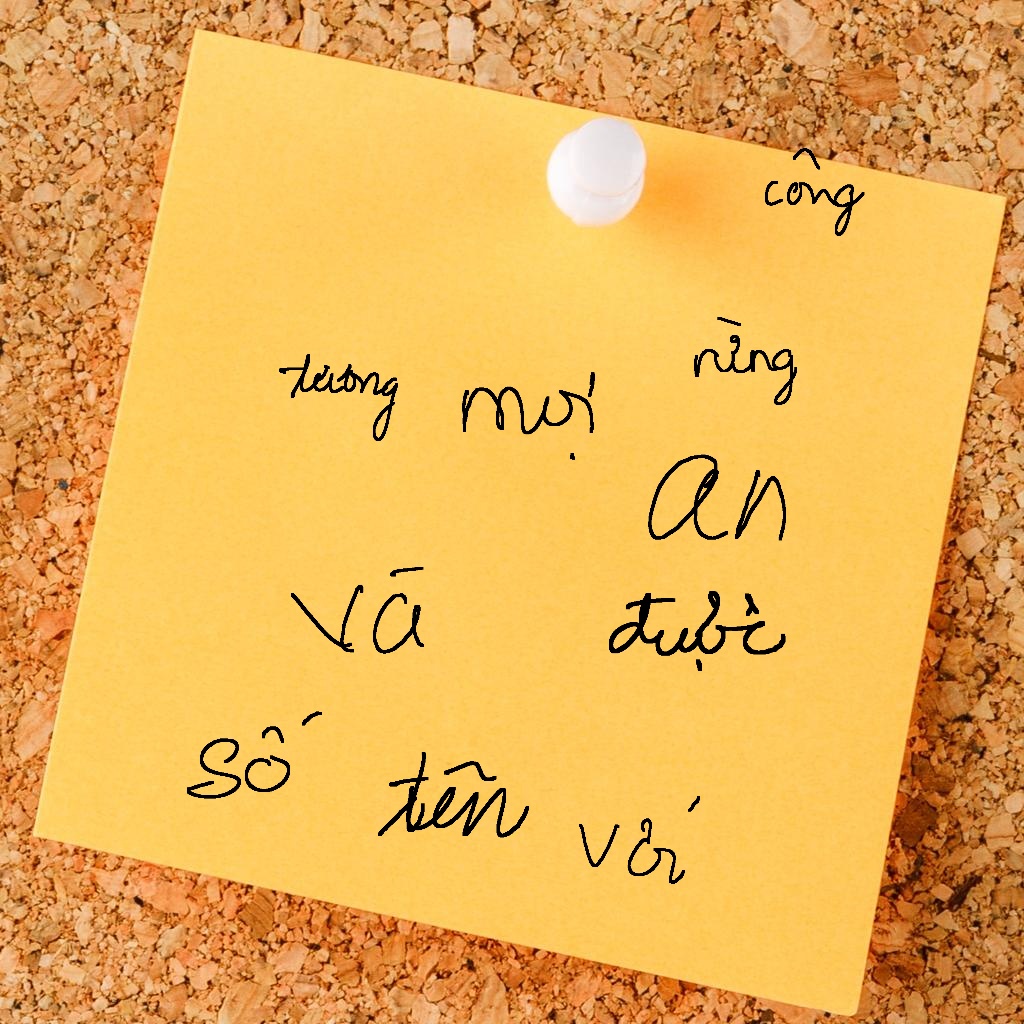 công
tương mọi riêng
an
và được
số tên với